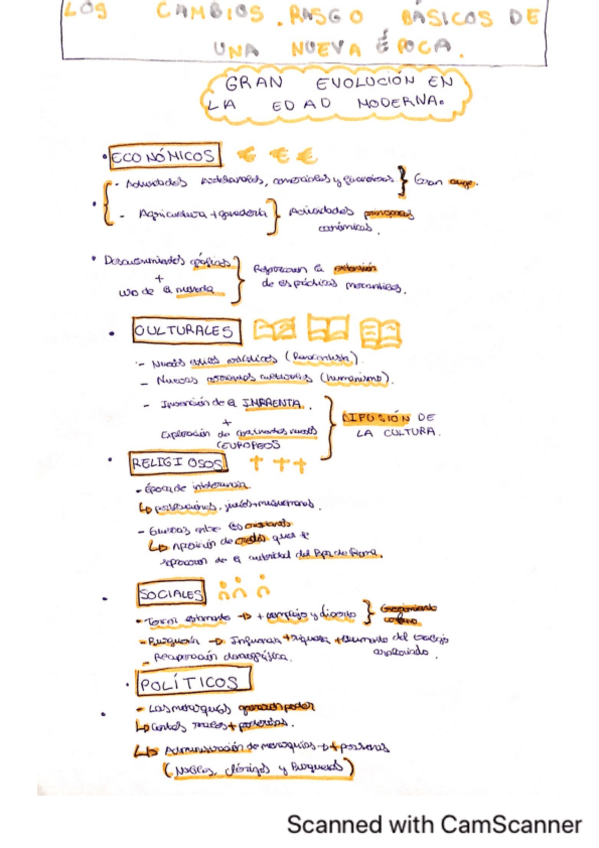 LOS CAMBIOS. RASGO BÁSICOS DE
UNA NUEVA ÉPOCA.
GRAN EVOLUCIÓN EN
LA EDAD MODERNA.
• ECONÓMICOS € € €
- Actividades artesanales, comerciales y financieras } Gran auge.
- Agricultura + ganadería } Actividades
económicas.
• Descubrimientos geográficos
+
uso de la moneda
la extensión
de las prácticas mercantiles.
• CULTURALES
- Nuevos estilos artísticos (Renacentista).
- Nuevas culturales (humanismo).
- Invención de la IMPRENTA.
+
Exploración de continentes
(EUROPEOS
DIFUSIÓN DE
LA CULTURA.
• RELIGIOSOS
- Época de intolerancia
↳ judíos + musulmanes.
- Guerras entre los cristianos
↳ Aparición de credos que se
separaron de la autoridad del Papa de Roma.
• SOCIALES
- Tercer estamento → + complejo y diverso }
- Burguesía → Influencia + riqueza + aumento del trabajo
asalariado.
- Recuperación demográfica.
• POLÍTICOS
- Los monarcas ganaron poder
↳ Cortes reales + poderosas.
↳ Administración de monarquías → + personas
(Nobles, clérigos y Burgueses)
Scanned with CamScanner